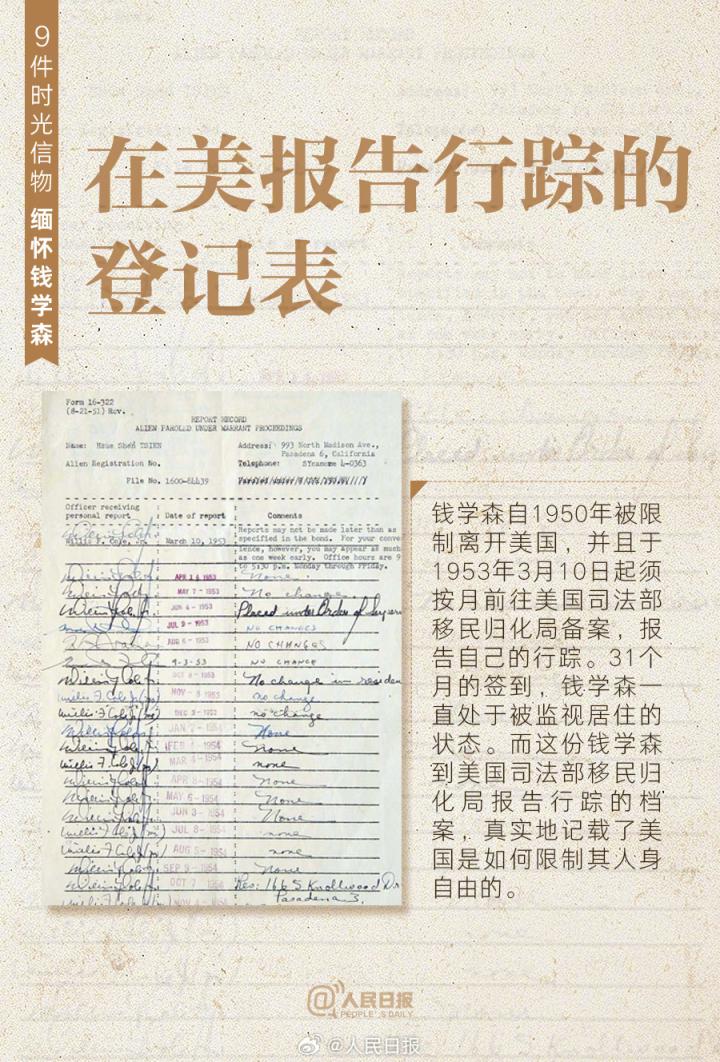 9件时光信物 缅怀钱学森
在美报告行踪的
登记表
Form 16-322
(8-21-51) Rev.
REPORT RECORD
ALIEN PAROLED UNDER WARRANT PROCEEDINGS
Name: Hsue Shen TSIEN
Address: 993 North Madison Ave.,
Pasadena 6, California
Alien Registration No.
Telephone: SYcamore 4-0363
File No. 1600-84439
Officer receiving
personal report
Date of report
Comments
Reports may not be made later than as
specified in the bond. For your conve
ience, however, you may appear as much
as one week early. Office hours are 9
to 5:30 p.m. Monday through Friday.
March 10, 1953
APR 14 1953 None
MAY 7 - 1953 No change
JUN 4 - 1953 Placed under Order of Superv
JUL 9 - 1953 NO CHANGES
AUG 6 - 1953 NO CHANGES
9-3-53 NO CHANGE
OCT 8 - 1953 No change in residen
NOV - 1953 no change
DEC - 1953 no change
JAN 7 - 1954 None
FEB 4 - 1954 None
MAR 4 - 1954 none
APR 8 - 1954 None
MAY 6 - 1954 None
JUN 3 - 1954 None
JUL 8 - 1954 none
AUG 5 - 1954 none
SEP 9 - 1954 None
OCT 7 1954 Res: 166 S. Knollwood Dr
Pasadena
NOV 4 - 1954
钱学森自1950年被限
制离开美国，并且于
1953年3月10日起须
按月前往美国司法部
移民归化局备案，报
告自己的行踪。31个
月的签到，钱学森一
直处于被监视居住的
状态。而这份钱学森
到美国司法部移民归
化局报告行踪的档
案，真实地记载了美
国是如何限制其人身
自由的。
@人民日报
PEOPLE'S DAILY
@人民日报